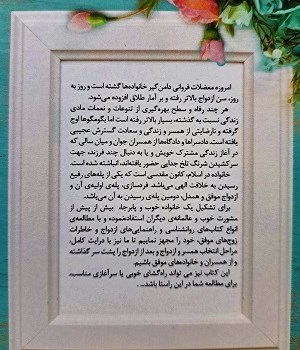 امروزه معضلات فروانی دامن‌گیر خانواده‌ها گشته است و روز به
روز، سن ازدواج بالاتر رفته و بر آمار طلاق افزوده می‌شود.
هر چند، رفاه و سطح بهره‌گیری از تنوعات و نعمات مادی
زندگی نسبت به گذشته، بسیار بالاتر رفته است اما بگومگوها اوج
گرفته و نارضایتی از همسر و زندگی و سعادت گسترش عجیبی
یافته است. دادسراها و دادگاه‌ها از همسران جوان و میان سالی که
در آغاز زندگی مشترک خویش و یا به دنبال چند فرزند، جهت
سرکشیدن شرنگ تلخ جدایی حضور یافته‌اند، انباشته شده است.
خانواده در اسلام، کانون مقدسی است که یکی از پله‌های رفیع
رسیدن به خلافت الهی می‌باشد. فردسازی، پله‌ی اولیه‌ی آن و
ازدواج موفق و همدل، دومین پله‌ی رسیدن به آن می‌باشد.
برای تشکیل یک خانواده خوب و پابرجا، بیش از پیش از
مشورت خوب و عالمانه‌ی دیگران استفاده‌نموده و با مطالعه‌ی
انواع کتاب‌های روانشناسی و راهنمایی‌های ازدواج و خاطرات
زوج‌های موفق، خود را مجهز نماییم تا ما نیز با درایت کامل،
مراحل انتخاب همسر و ازدواج و بعد از ازدواج را پشت سر گذاشته
و از همسران و خانواده‌های موفق باشیم.
این کتاب نیز می تواند راه‌گشای خوبی یا سرآغازی مناسب،
برای مطالعه شما در این راستا باشد...